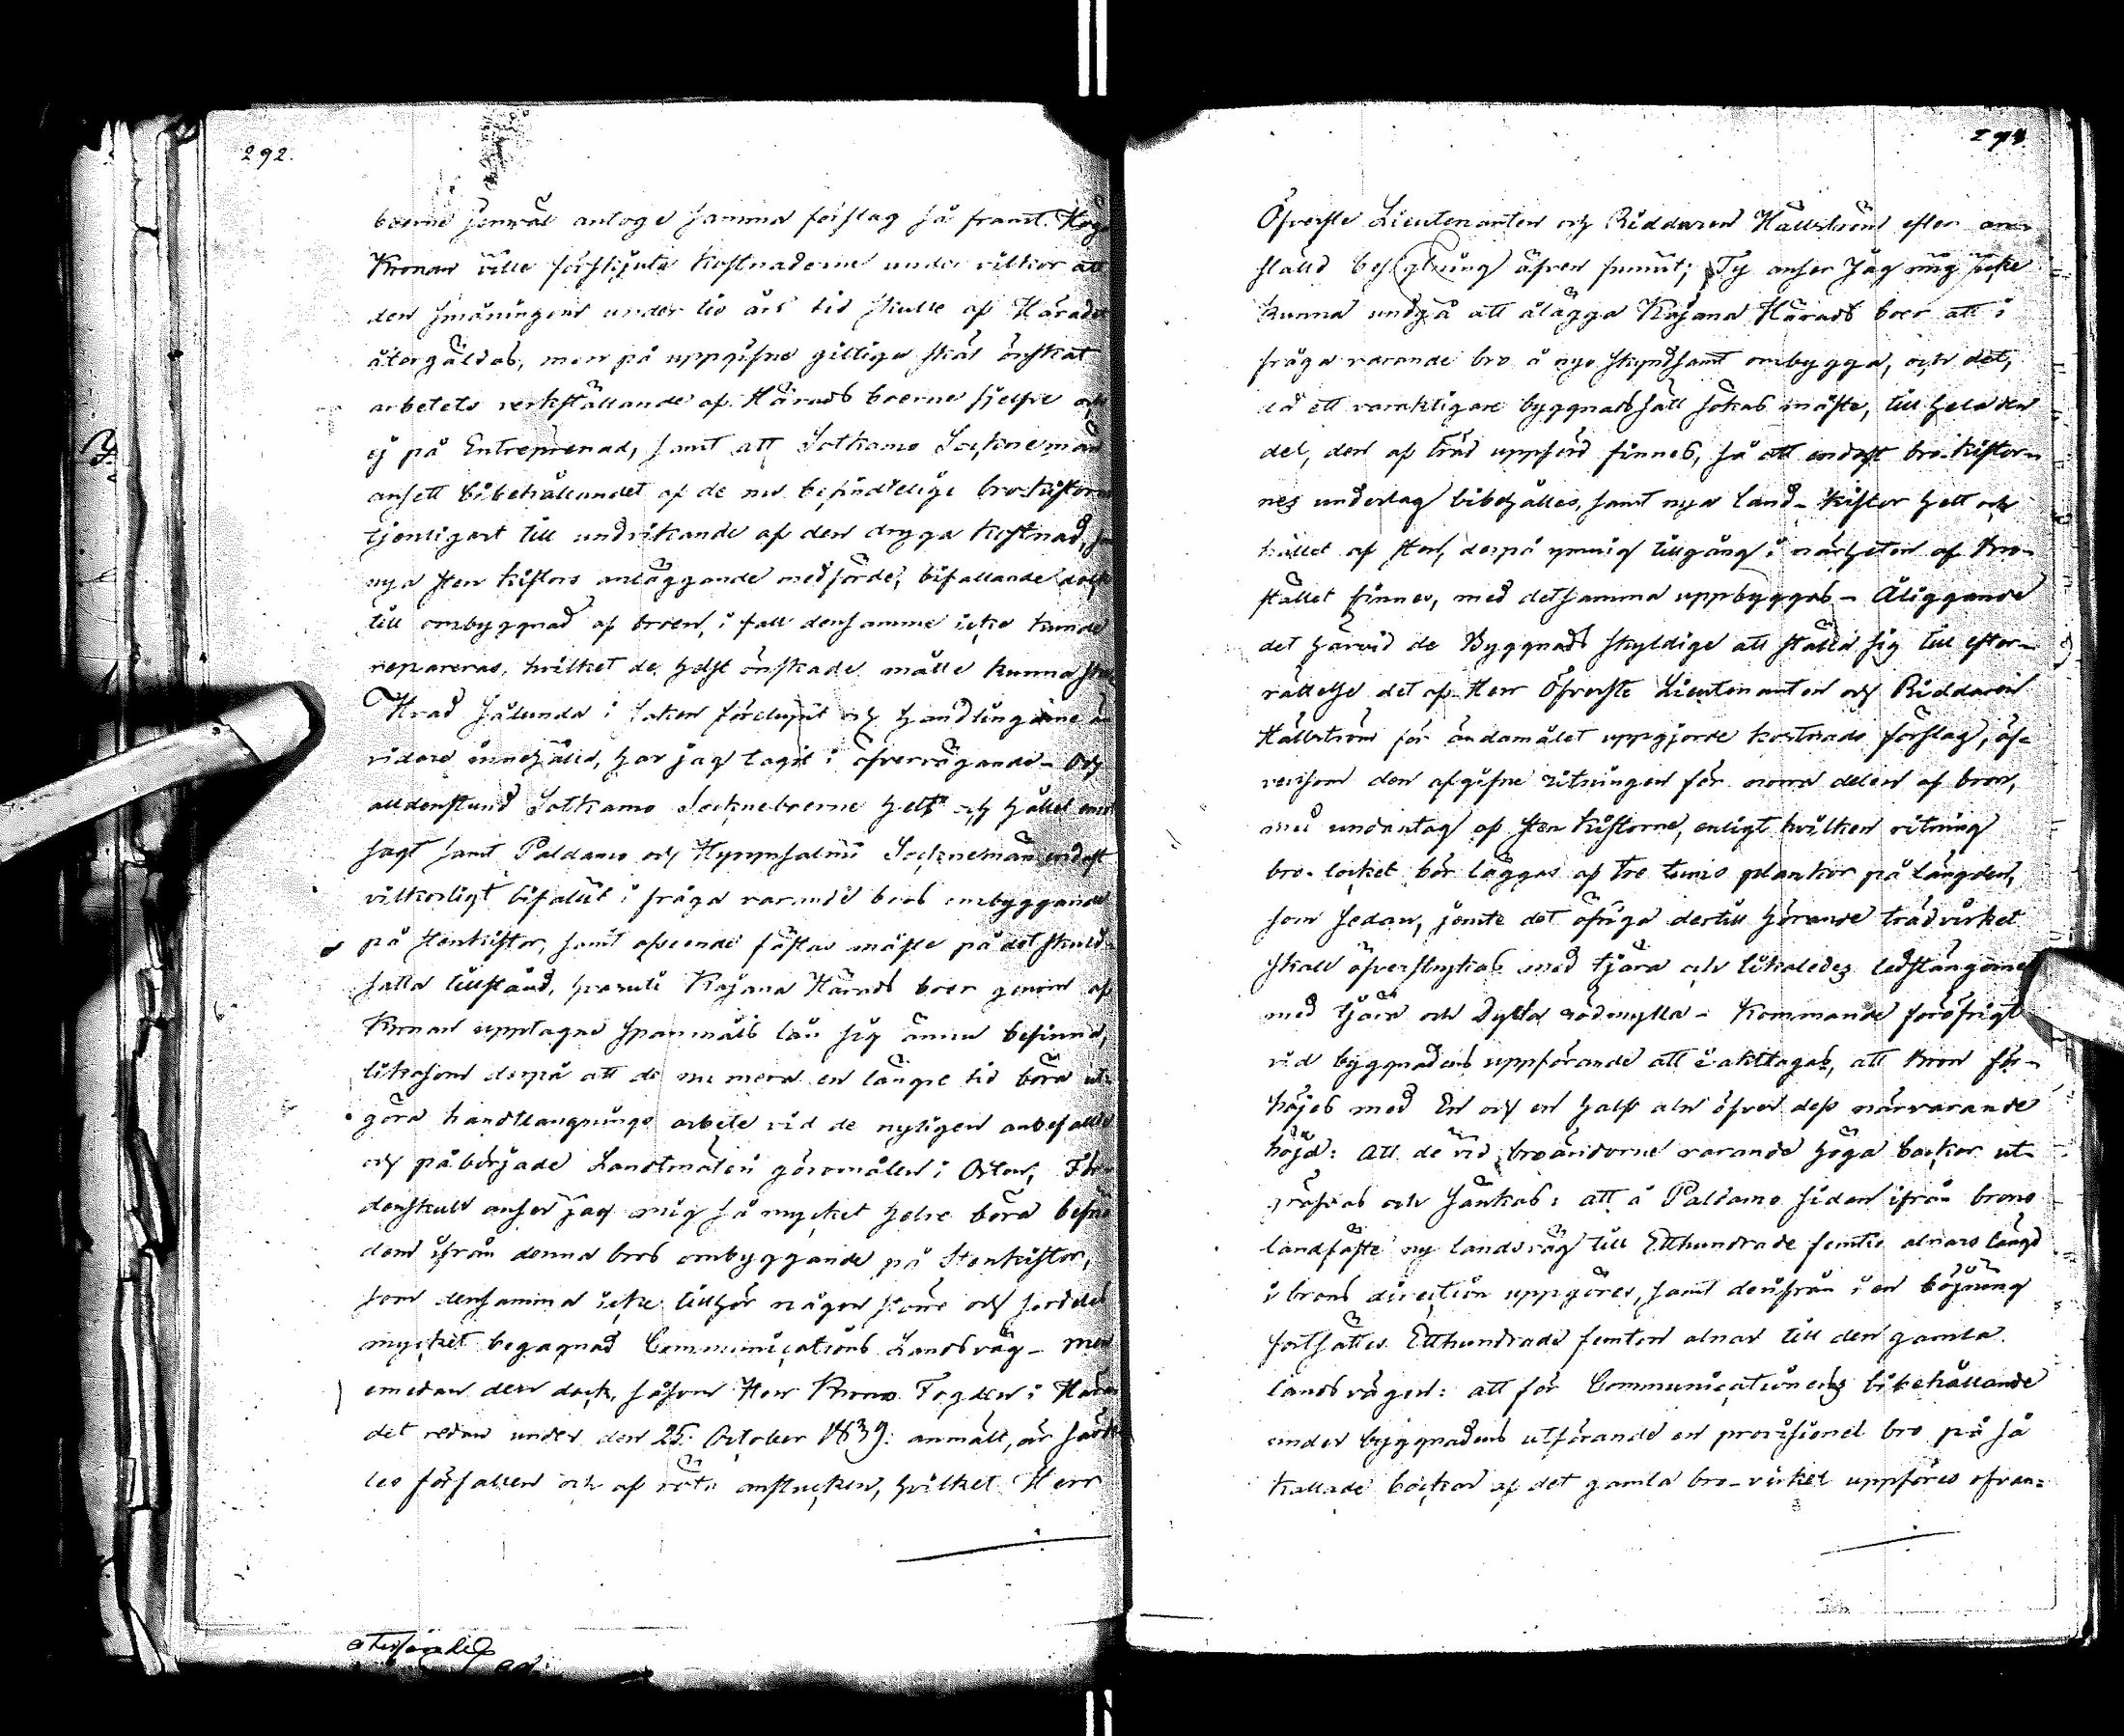 292.
boerne jemwäl antoge samma förslag så framt Höga
Kronan ville förskjuta kostnaderne under vilkor att
den småningom under tio års tid skulle af Häradet
återgäldas, men på uppgifne giltiga skäl önskat
arbetets verkställande af Härads boerne sjelfve och
ej på Entreprenad, samt att Sotkamo Socknemän
ansett bibehållandet af de nu befindtelige brokistorne
tjenligast till undvikande af den dryga kostnad, som
nya sten kistors anläggande medförde, bifallande dock
till ombyggnad af broen, i fall densamme icke kunde
repareras, hvilket de helst önskade måtte kunna ske.
Hvad sålunda i saken förelupit och handlingarne än
vidare innehålla, har jag tagit i öfvervägande – Och
alldenstund Sotkamo Sockneboerne helt och hållet emot
sagt samt Paldamo och Hyrynsalmi Socknemän endast
vilkorligt bifallit i fråga varande bros ombyggande
på stenkistor, samt afseende fästas måste på det skuld-
satta tillstånd, hvaruti Kajana Härads boer genom af
Kronan upptagne spanmåls lån sig ännu befinna,
likasom derpå att de nu mera en längre tid böra ut-
göra handtlangnings arbete vid de nyligen anbefallte
och påbörjade Landtmäteri göromålen i Orten; För-
denskull anser jag mig så mycket heldre böra befria
dem ifrån denna bros ombyggande på Stenkistor,
som densamma icke tillhör någon större och serdeles
mycket begagnad Communications Landsväg – Men
emedan den dock, såsom Herr Krono Fogden i Hära-
det redan under den 25. October 1839: anmält, är särde-
les förfallen och af röta anstucken, hvilket Herr
293.
Öfverste Lieutenanten och Riddaren Hällström efter an-
ställd besigtning äfven funnit; Ty anser Jag mig icke
kunna undgå att ålägga Kajana Härads boer att i
fråga varande bro å nyo skyndsamt ombygga, och det,
då ett varaktigare byggnads sätt sökas måste, till hela den
del, den af träd uppförd finnes, så att endast bro-kistor-
nes underlag bibehålles, samt nya land-kistor helt och
hållet af sten, derpå ymnig tillgång i närheten af bro-
stället finnes, med detsamma uppbyggas – Åliggande
det härvid de Byggnads skyldige att ställa sig till efter-
rättelse det af Herr Öfverste Lieutenanten och Riddaren
Hällström för ändamålet uppgjorde kostnads förslag, äf-
vensom den afgifne ritningen för norra delen af bron,
med undantag af sten kistorne, enligt hvilken ritning
bro-locket bör läggas af tre tums plankor på längden,
som sedan, jemte det öfriga dertill hörande trädvirket
skall öfverstrykas med tjära och likaledes ledstängerne
med tjära och Dylta rödmylla – Kommande föröfrigt
vid byggnadens uppförande att iakttagas, att bron för-
höjes med En och en half aln öfver dess närvarande
höjd: att de vid broändorne varande höga backor ut-
gräfvas och sänkas: att å Paldamo sidan ifrån brons
landfäste ny landsväg till Etthundrade femtio alnars längd
i brons direction uppgöres, samt derifrån i en böjning
fortsättes Etthundrade femton alnar till den gamla
landsvägen: att för Communicationens bibehållande
under byggnadens utförande en provisionel bro på så
kallade bockar af det gamla bro-virket uppföres ofvan-